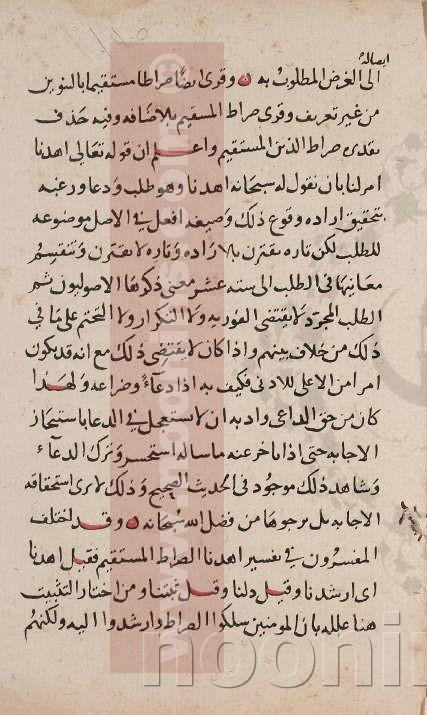 ايصاله
الى الغرض المطلوب به وقرى ايضا صراطا مستقيما بالتنوين
من غير تعريف وقرى صراط المستقيم بالاضافه وفيه حذف
تقدير صراط الدين المستقيم واعلم ان قوله تعالى اهدنا
امر لنا بان نقول له سبحانه اهدنا وهو طلب ودعا ورغبه
بتحقيق اراده وقوع ذلك وصيغه افعل في الاصل موضوعه
للطلب لكن تاره يقترن بالاراده وتاره لا يقترن وتنقسم
معانيها في الطلب الى سته عشر معنى ذكرها الاصوليون ثم
الطلب المجرد لا يقتضى الفوريه ولا التكرار ولا التحتم على ما في
ذلك من خلاف بينهم واذا كان لا يقتضى ذلك مع انه قد يكون
امرا من الاعلى للادنى فكيف به اذا دعاء وضراعه ولهذا
كان من حق الداعى وادبه ان لا يستعجل في الدعا باستنجاز
الاجابه حتى اذا تاخر عنه ما ساله استحسر وترك الدعاء
وشاهد ذلك موجود في الحديث الصحيح وذلك لا يرى استحقاقه
الاجابه بل يرجوها من فضل الله سبحانه وقد اختلف
المفسرون في تفسير اهدنا الصراط المستقيم فقيل اهدنا
اى ارشدنا وقيل دلنا وقيل ثبتنا ومن اختار التثبيت
هنا علله بان المومنين سلكوا الصراط وارشدوا اليه ولكنهم
nooni